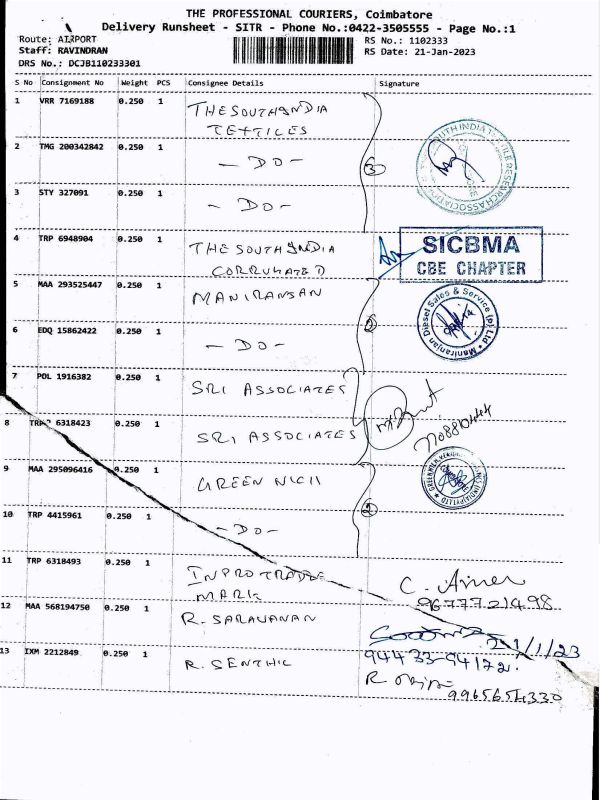 THE PROFESSIONAL COURIERS, Coimbatore
Delivery Runsheet - SITR - Phone No.:0422-3505555 - Page No.:1
Route: AIRPORT RS No.: 1102333
Staff: RAVINDRAN RS Date: 21-Jan-2023
DRS No.: DCJB110233301
S No Consignment No Weight PCS Consignee Details Signature
1 VRR 7169188 0.250 1 THE SOUTH INDIA
TEXTILES
2 TMG 200342842 0.250 1 - DO -
3
SOUTH INDIA TEXTILE RESEARCH ASSOCIATION
3 STY 327091 0.250 1 - DO -
4 TRP 6948904 0.250 1 THE SOUTH INDIA
CORRUGATED
SICBMA
CBE CHAPTER
5 MAA 293525447 0.250 1 MANIRANJAN
6 EDQ 15862422 0.250 1 - DO -
2
Maniranjan Diesel Sales & Service (P) Ltd
7 POL 1916382 0.250 1 SRI ASSOCIATES
8 TRP 6318423 0.250 1 SRI ASSOCIATES
9 MAA 295096416 0.250 1 GREEN
10 TRP 4415961 0.250 1 - DO -
2
11 TRP 6318493 0.250 1 INPRO TRADE
MARK
9677721498
12 MAA 568194750 0.250 1 R. SARAVANAN
21/1/23
94433-94172
13 IXM 2212849 0.250 1 R. SENTHIL
9965654330